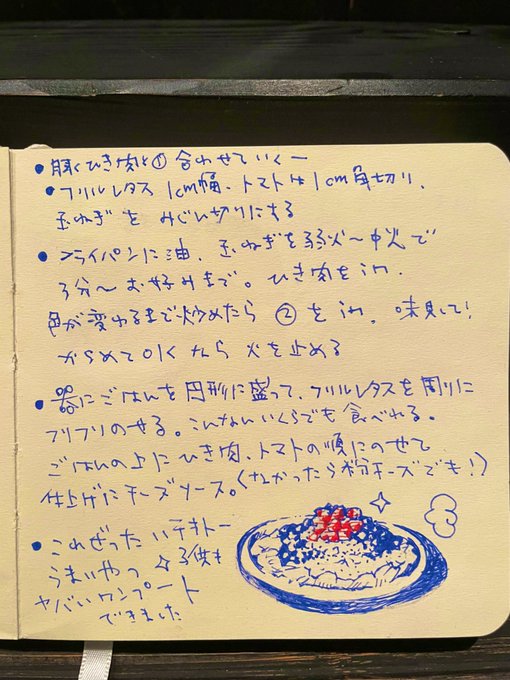 ●豚ひき肉と①合わせていくー
●フリルレタス1cm幅、トマトは1cm角切り、
玉ねぎをみじん切りにする
●フライパンに油、玉ねぎを弱火〜中火で
3分〜お好みまで。ひき肉をin、
色が変わるまで炒めたら②をin、味見して!
からめて0くなら火を止める
●器にごはんを円形に盛って、フリルレタスを周りに
フリフリのせる。こんなんいくらでも食べれる。
ごはんの上にひき肉、トマトの順にのせて
仕上げにチーズソース。(なかったら粉チーズでも!)
●これぜったい
うまいやつ 子供も
ヤバいワンプレート
できました